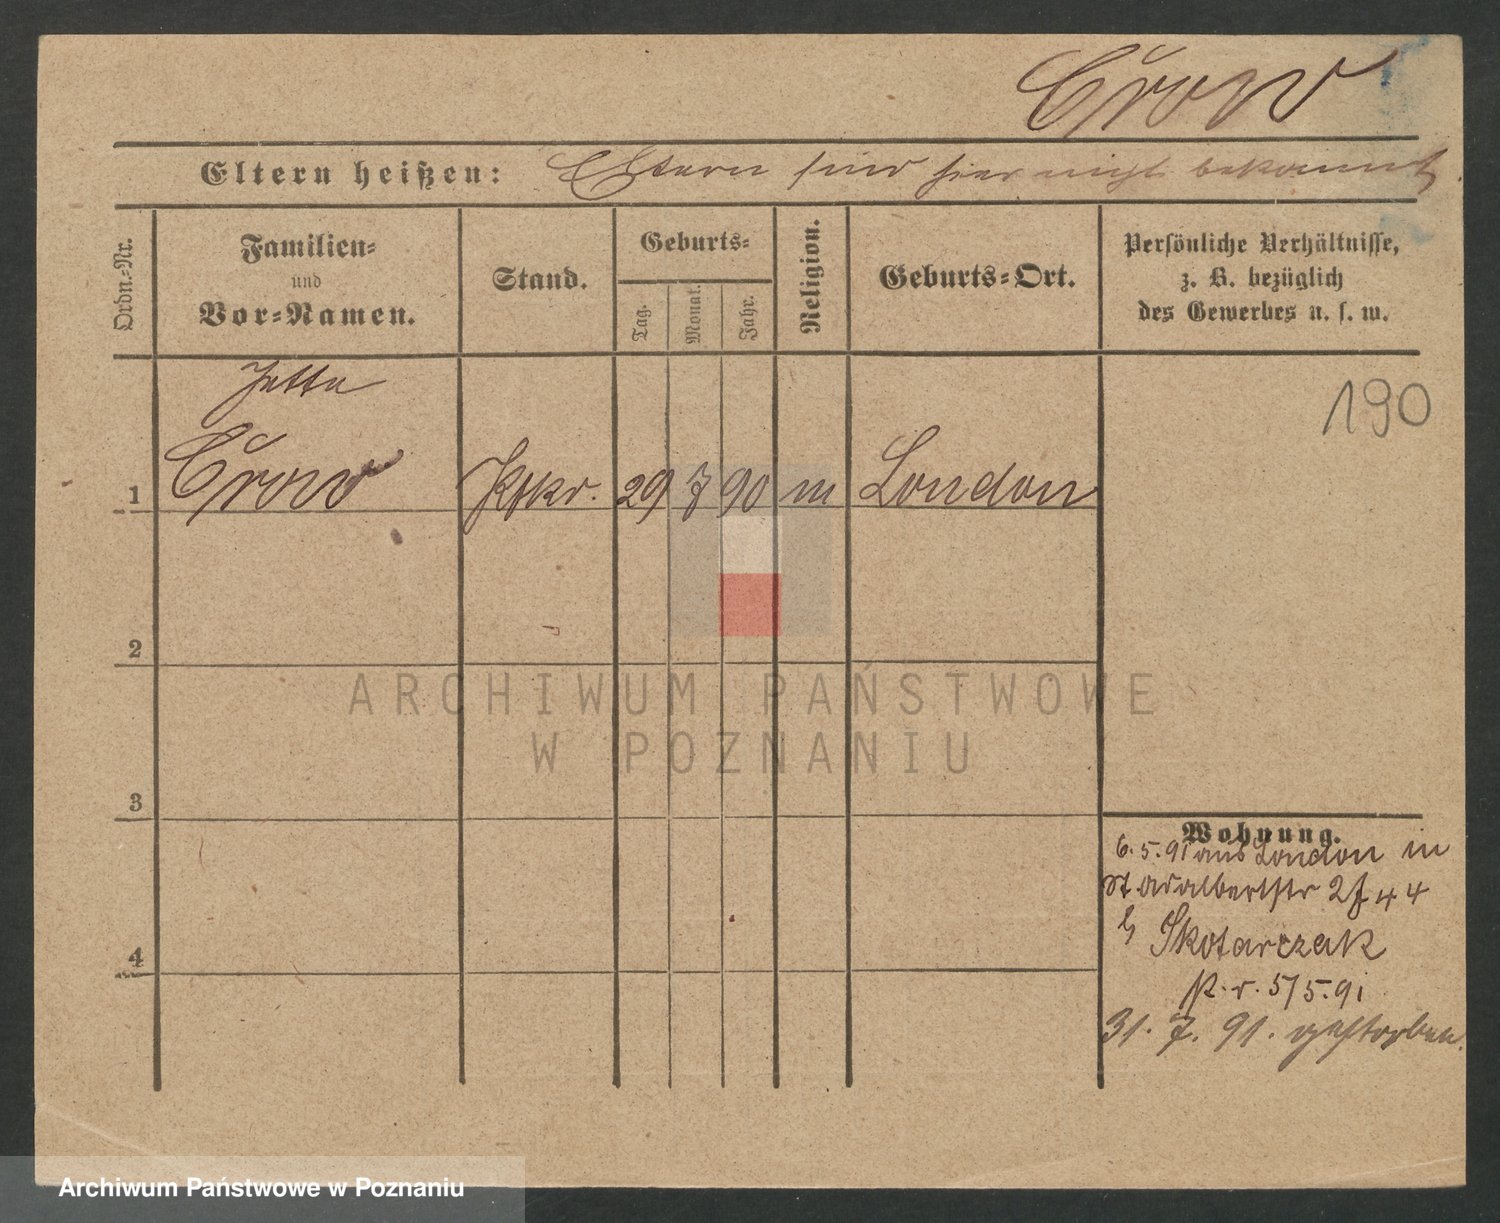 Crow
Eltern heißen: Eltern sind hier nicht bekannt.
Ordn.-Nr.
Familien-
und
Vor-Namen.
Stand.
Geburts-
Tag.
Monat.
Jahr.
Religion.
Geburts-Ort.
Persönliche Verhältnisse,
z. B. bezüglich
des Gewerbes u. s. w.
190
Jette
1 Crow 29 7 90 m London
2
3
4
ARCHIWUM PAŃSTWOWE
W POZNANIU
Wohnung.
6.5.91 aus London in
St Adalbertstr 44
b Skotarczak
p. r. 5/5.91
31. 7. 91. gestorben.
Archiwum Państwowe w Poznaniu